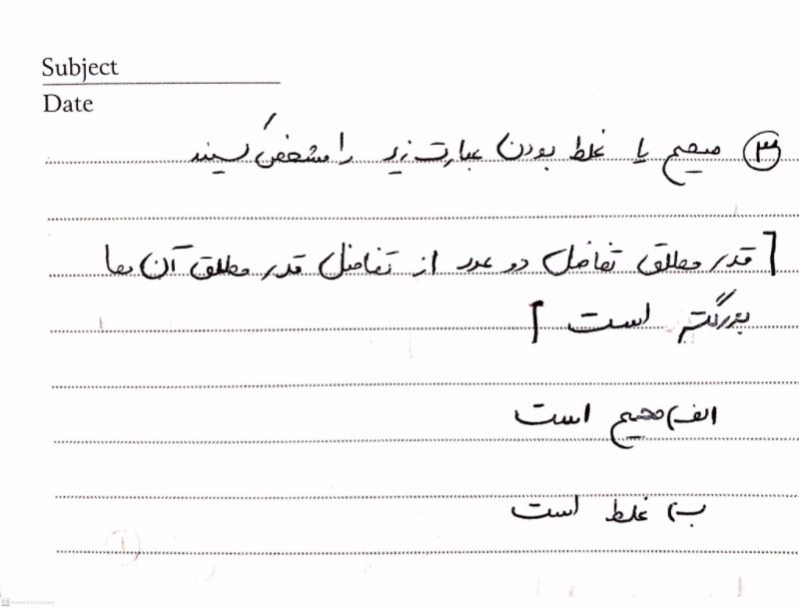 Subject
Date
۳ صحیح یا غلط بودن عبارت زیر را مشخص کنید
[ قدر مطلق تفاضل دو عدد از تفاضل قدر مطلق آن ها
بزرگتر است ]
الف) صحیح است
ب) غلط است